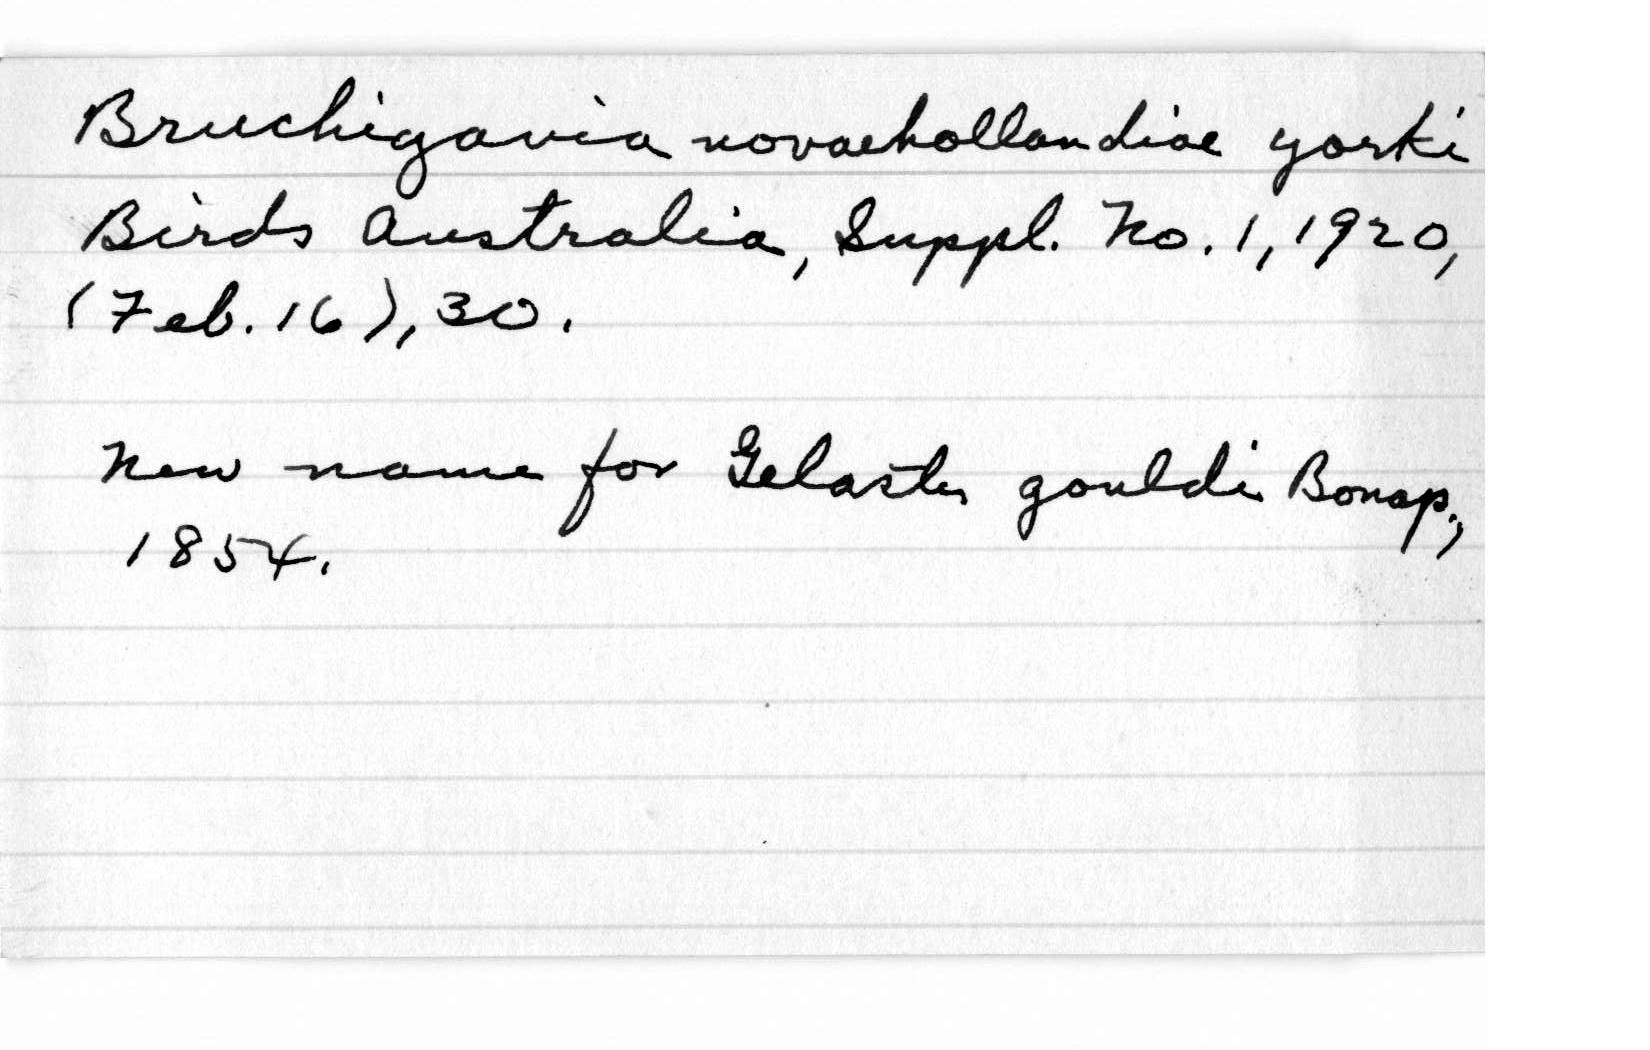 Bruchigavia novaehollandiae yorki
Birds Australia, Suppl. No. 1, 1920,
(Feb. 16), 30.
New name for Gelastes gouldi Bonap.,
1854.